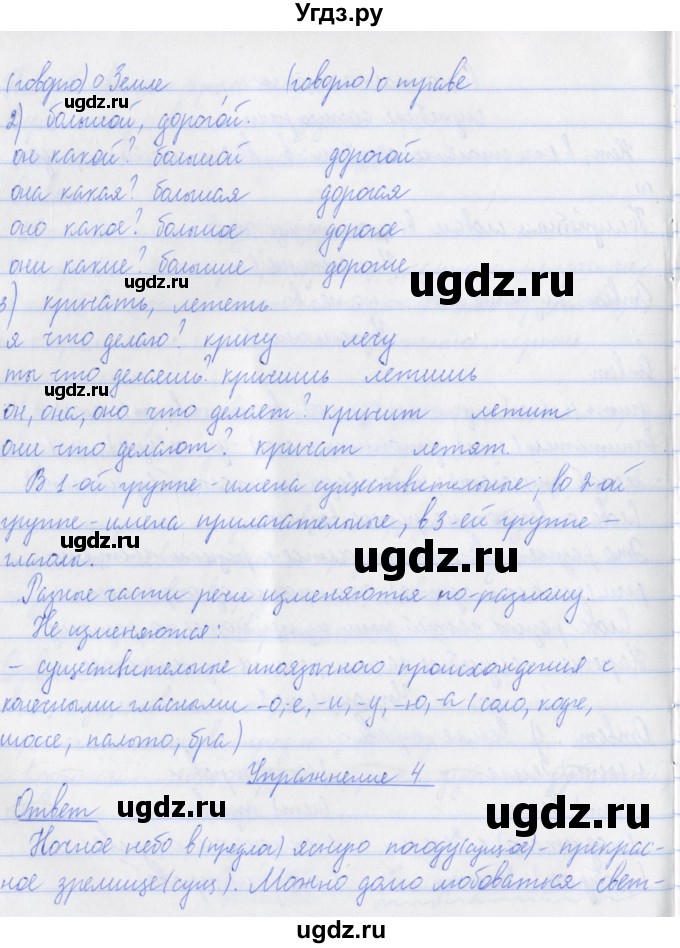 Угдз.ру
(говорю) о Земле (говорю) о траве
2) большой, дорогой.
он какой? большой дорогой
она какая? большая дорогая
оно какое? большое дорогое
они какие? большие дорогие
3) кричать, лететь.
я что делаю? кричу лечу
ты что делаешь? кричишь летишь
он, она, оно что делает? кричит летит
они что делают? кричат летят.
В 1-ой группе - имена существительные, во 2-ой
группе - имена прилагательные, в 3-ей группе -
глаголы.
Разные части речи изменяются по-разному.
Не изменяются:
- существительные иноязычного происхождения с
конечными гласными -о, -е, -и, -у, -ю, -а (соло, кофе,
шоссе, пальто, бра)
Упражнение 4
Ответ
Ночное небо в (предлог) ясную погоду (сущ-ое) - прекрас-
ное зрелище (сущ). Можно долго любоваться свет-
ugdz.ru
ugdz.ru
ugdz.ru
ugdz.ru
ugdz.ru
ugdz.ru
ugdz.ru
ugdz.ru
ugdz.ru
ugdz.ru
ugdz.ru